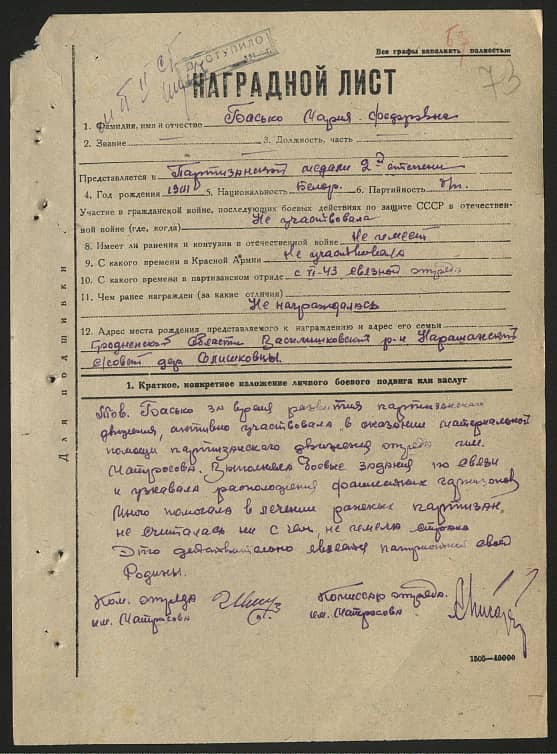 Все графы заполнять полностью
ПОСТУПИЛО
73
НАГРАДНОЙ ЛИСТ
1. Фамилия, имя и отчество Басько Мария Федоровна
2. Звание 3. Должность, часть
Представляется к Партизанской медали 2й степени
4. Год рождения 5. Национальность Белор. 6. Партийность б/п.
Участие в гражданской войне, последующих боевых действиях по защите СССР в отечествен-
ной войне (где, когда) Не участвовала
8. Имеет ли ранения и контузии в отечественной войне Не имеет
9. С какого времени в Красной Армии Не участвовала
10. С какого времени в партизанском отряде с 43 связной отряда
11. Чем ранее награжден (за какие отличия)
Не награждалась
12. Адрес места рождения представляемого к награждению и адрес его семьи
Гродненской области Василишковский р-н
с/совет дер.
Для подшивки
1. Краткое, конкретное изложение личного боевого подвига или заслуг
Тов. Басько за время развития партизанского
движения, активно участвовала в оказании материальной
помощи партизанского движения отряда им.
Матросова. Выполняла боевые задания по связи
и узнавала расположения фашистских гарнизонов
Много помогала в лечении раненых партизан,
не считалась ни с чем, не имела страха
Это действительно явление патриотки своей
Родины.
Ком. отряда Комиссар отряда
им. Матросова им. Матросова
1505—40000